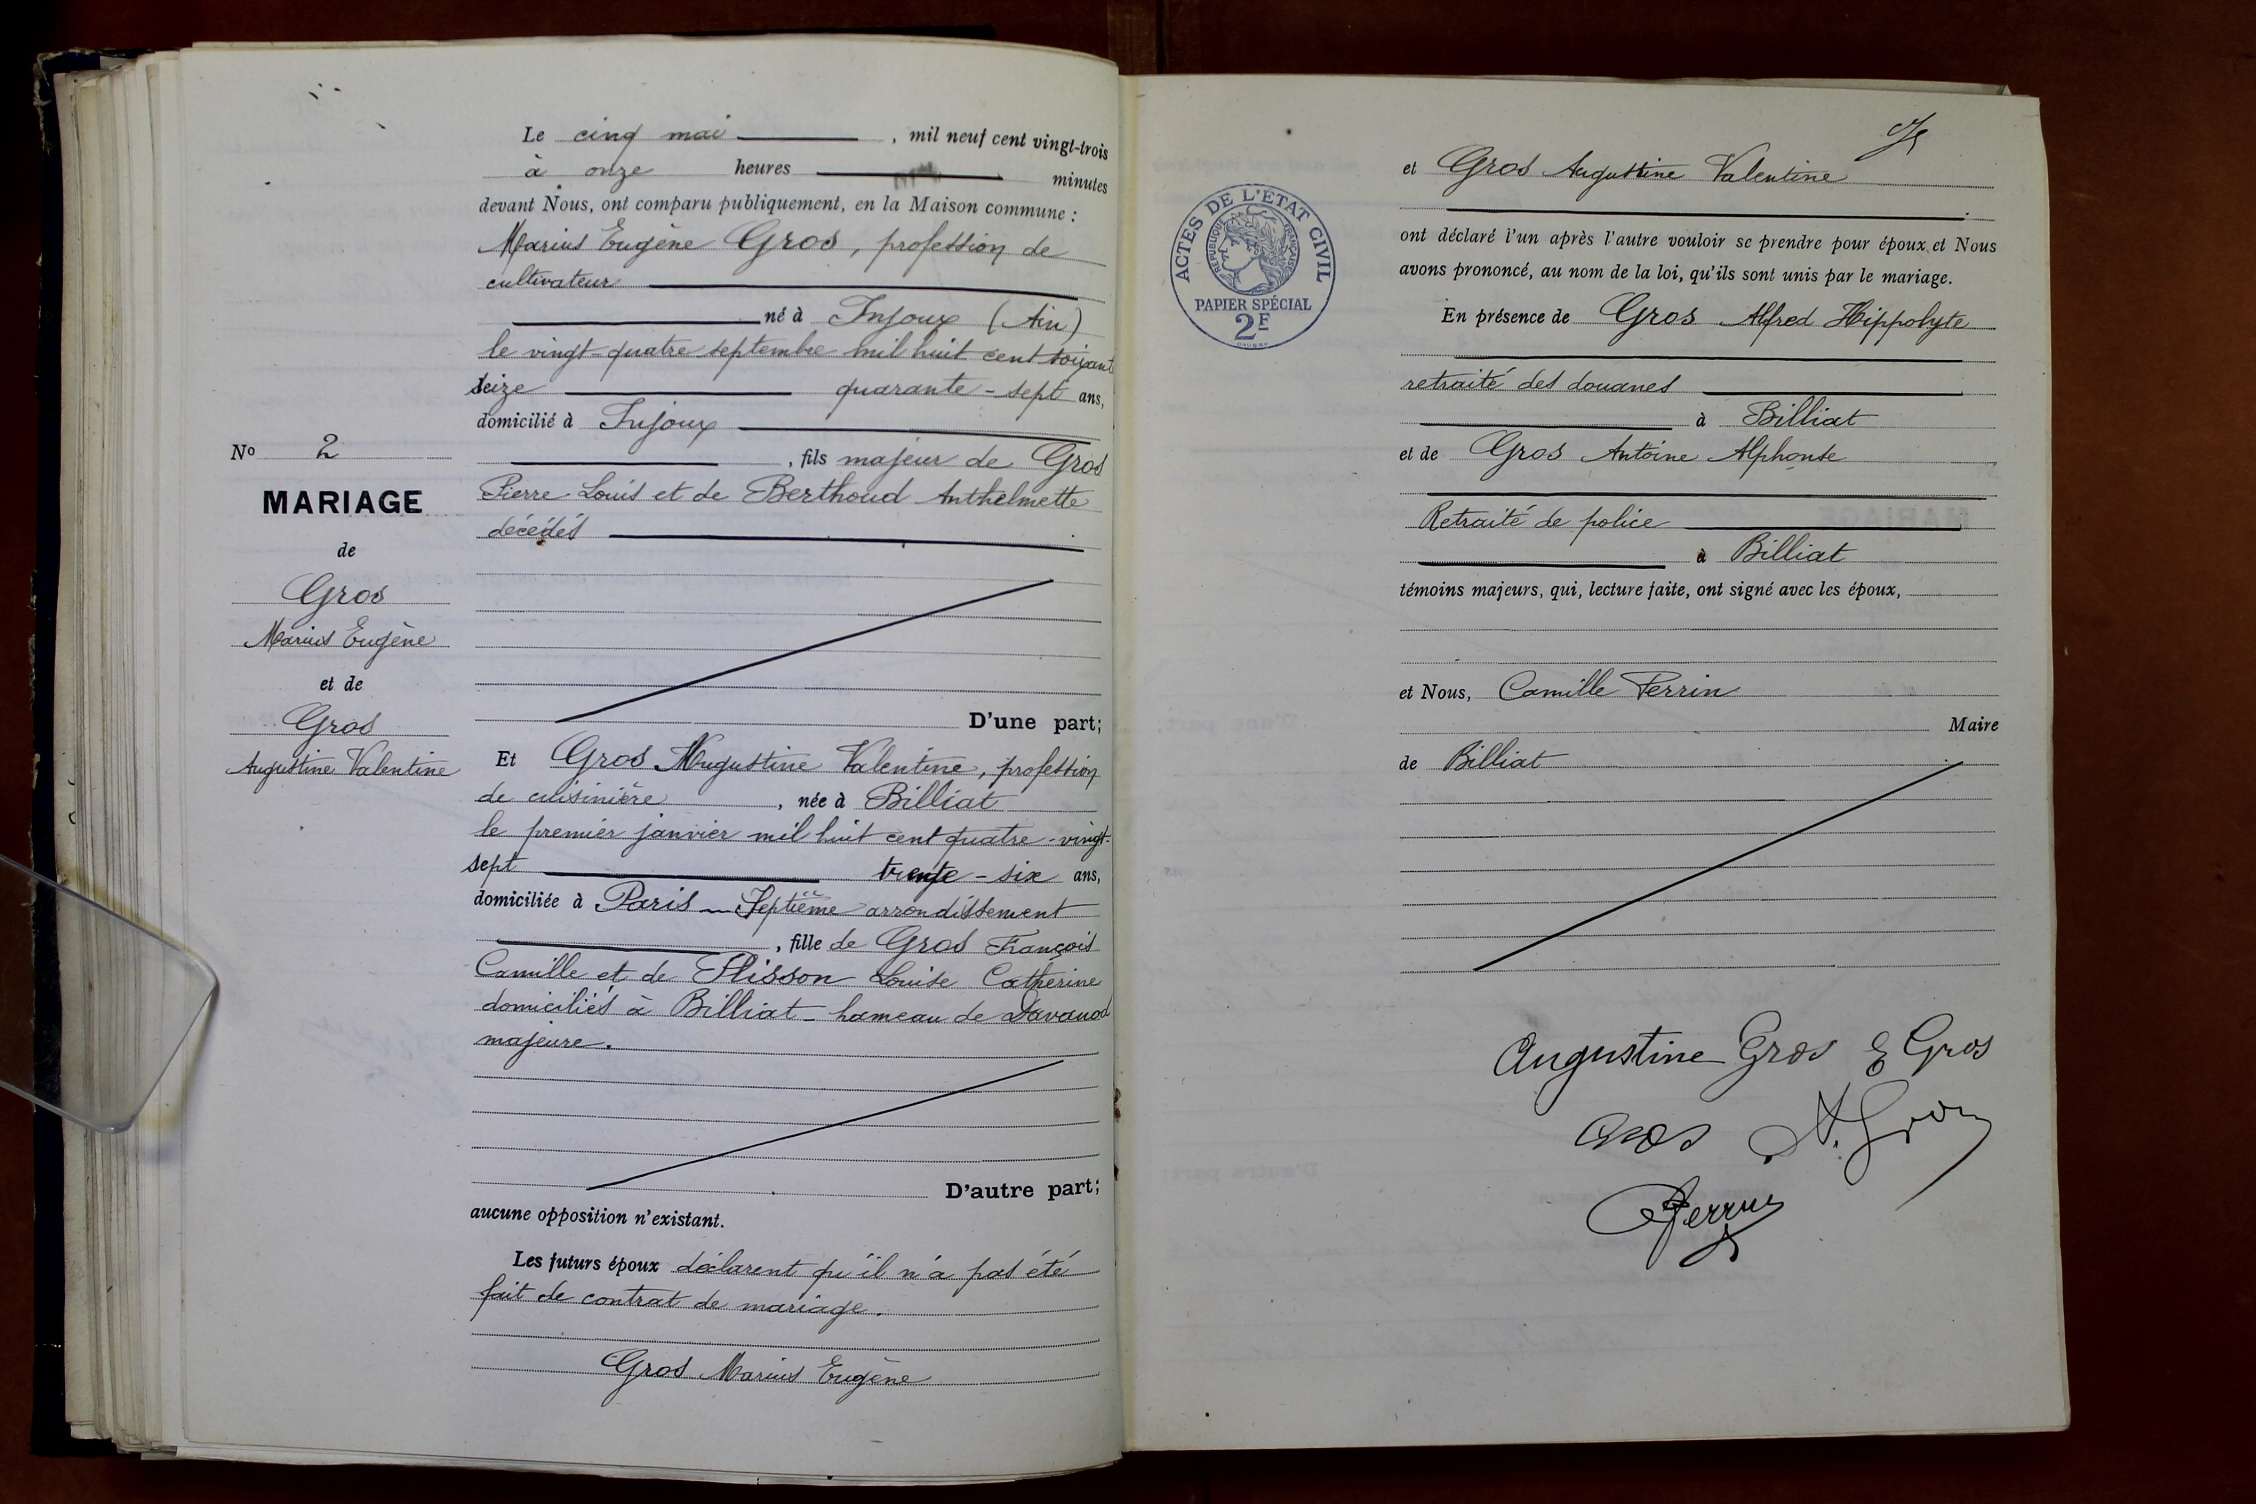 Le cinq mai , mil neuf cent vingt-trois
à onze heures minutes
devant Nous, ont comparu publiquement, en la Maison commune :
Marius Eugène Gros, profession de
cultivateur
né à Injoux (Ain)
le vingt-quatre septembre mil huit cent soixante
seize quarante-sept ans,
domicilié à Injoux
, fils majeur de Gros
Pierre Louis et de Berthoud Anthelmette
décédés
No 2
MARIAGE
de
Gros
Marius Eugène
et de
Gros
Augustine Valentine
D'une part;
Et Gros Augustine Valentine, profession
de cuisinière , née à Billiat
le premier janvier mil huit cent quatre-vingt-
sept trente-six ans,
domiciliée à Paris - Septième arrondissement
, fille de Gros François
Camille et de Plisson Louise Catherine
domiciliés à Billiat - hameau de Davanod
majeure.
D'autre part;
aucune opposition n'existant.
Les futurs époux déclarent qu'il n'a pas été
fait de contrat de mariage.
Gros Marius Eugène
et Gros Augustine Valentine
ACTES DE L'ÉTAT CIVIL
RÉPUBLIQUE FRANÇAISE
PAPIER SPÉCIAL
2F
ont déclaré l'un après l'autre vouloir se prendre pour époux et Nous
avons prononcé, au nom de la loi, qu'ils sont unis par le mariage.
En présence de Gros Alfred Hippolyte
retraité des douanes
à Billiat
et de Gros Antoine Alphonse
Retraité de police
à Billiat
témoins majeurs, qui, lecture faite, ont signé avec les époux,
et Nous, Camille Perrin
Maire
de Billiat
Augustine Gros E Gros
Gros A. Gros
C Perrin